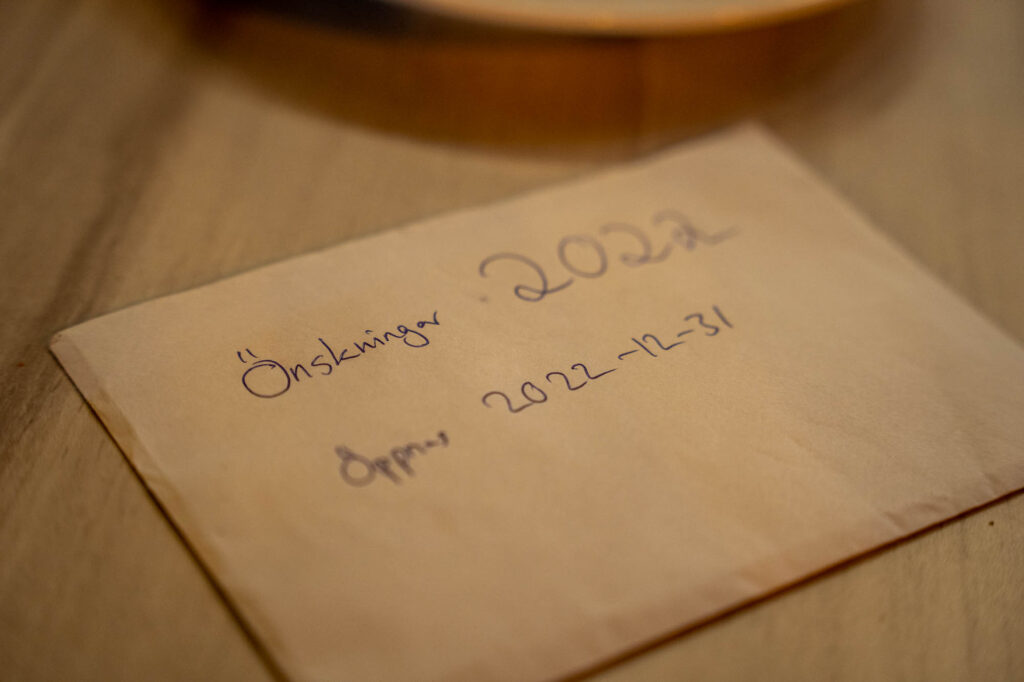 Önskningar 2022
Öppnas 2022-12-31